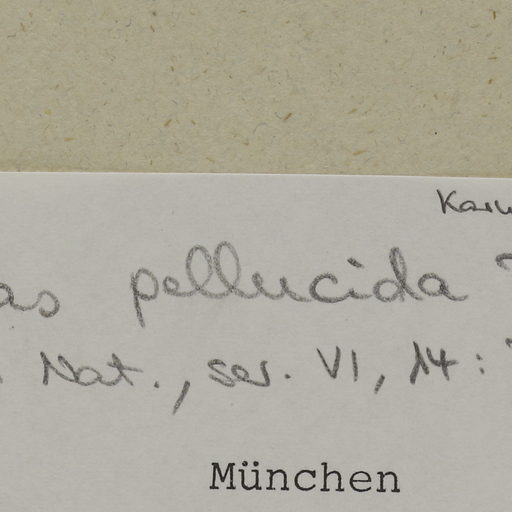 pellucida
Nat., ser. VI, 14:
München